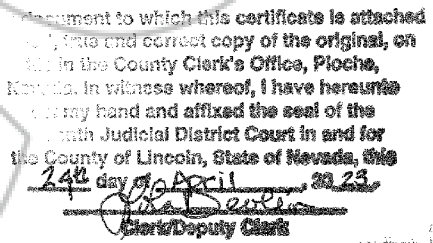 document to which this certificate is attached
true and correct copy of the original, on
in the County Clerk's Office, Pioche,
Nevada. In witness whereof, I have hereunto
my hand and affixed the seal of the
Judicial District Court in and for
the County of Lincoln, State of Nevada, this
24th day of April, 2023
Clerk/Deputy Clerk